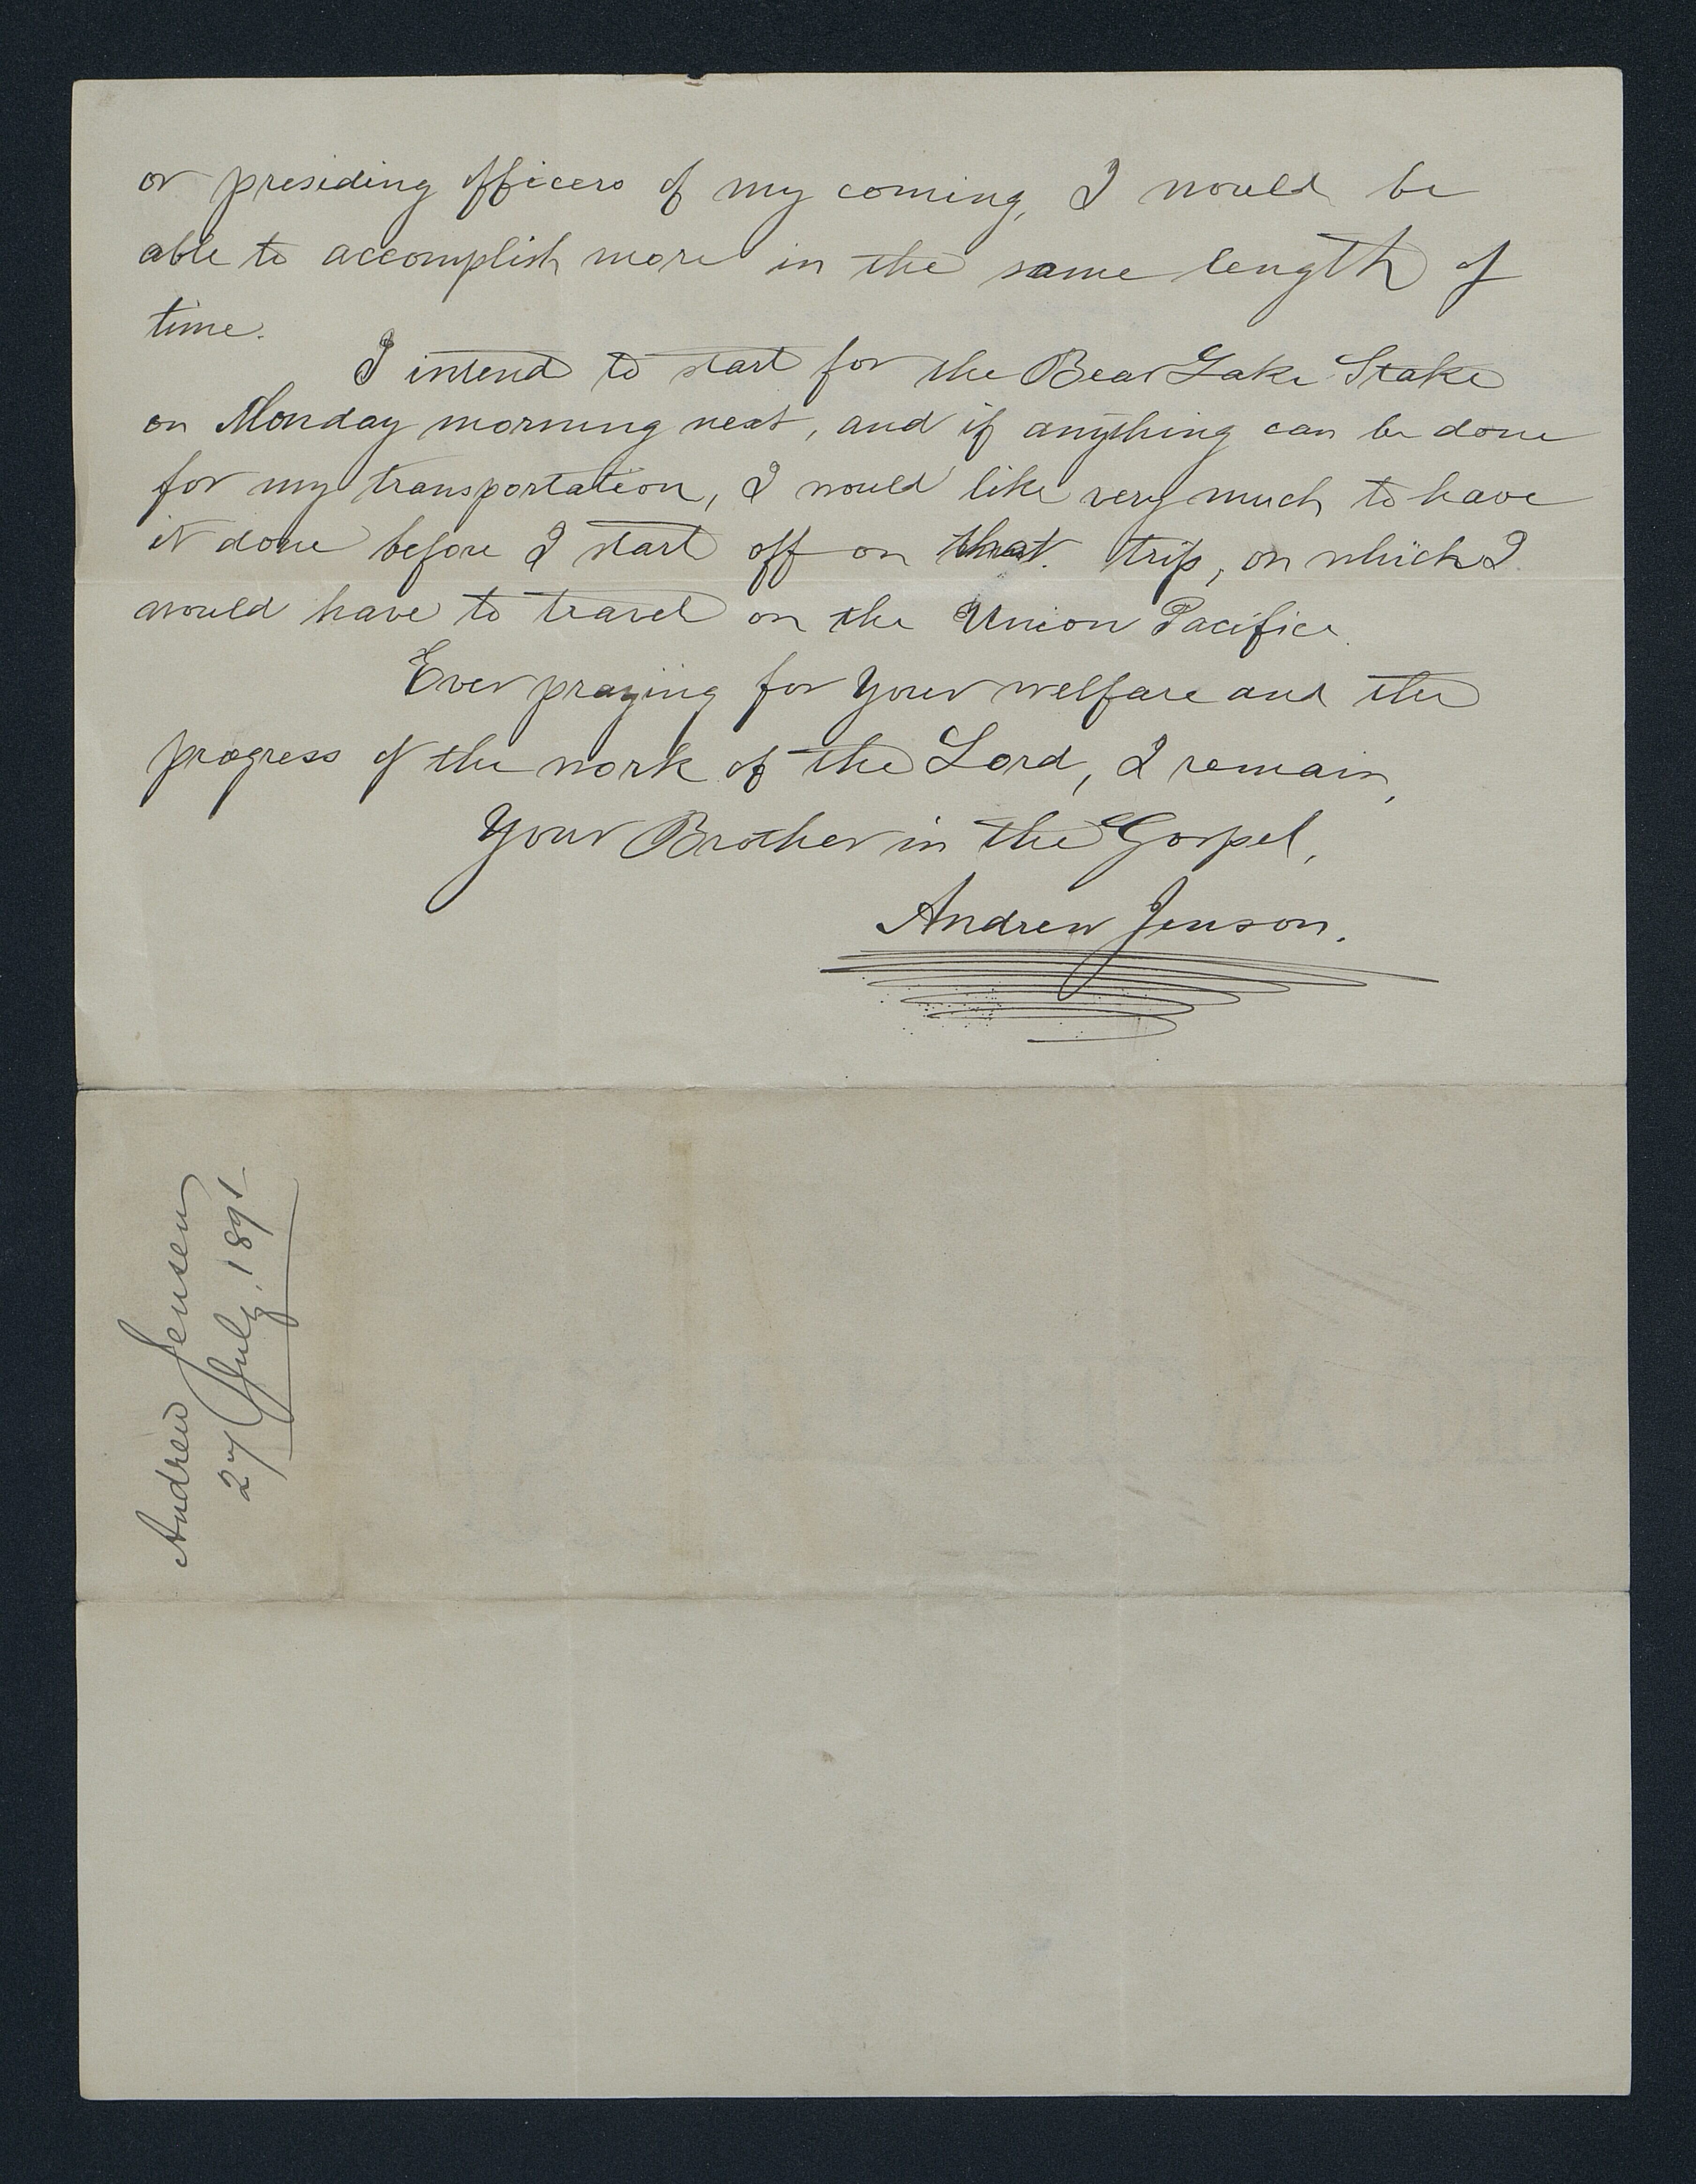 or presiding officers of my coming, I would be
able to accomplish more in the same length of
time.
I intend to start for the Bear Lake Stake
on Monday morning next, and if anything can be done
for my transportation, I would like very much to have
it done before I start off on that trip, on which I
would have to travel on the Union Pacific.
Ever praying for your welfare and the
progress of the work of the Lord, I remain,
Your Brother in the Gospel,
Andrew Jenson.
Andrew Jensen
27 July, 1891